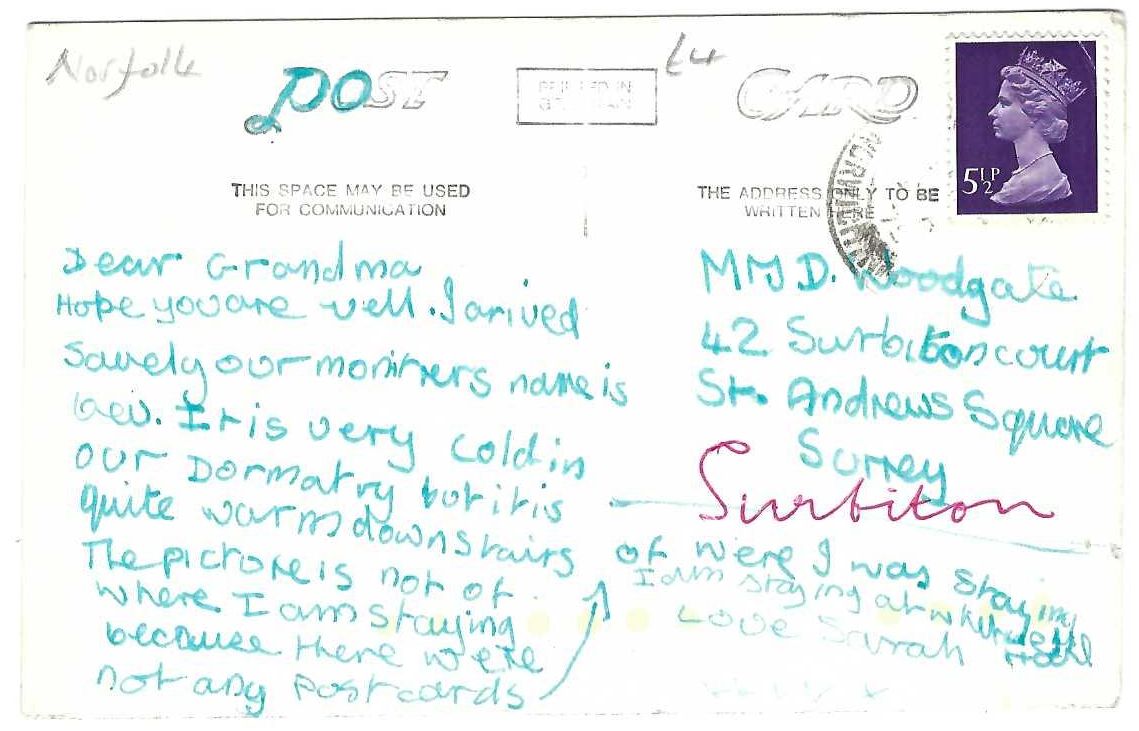 Norfolk
£4
POST CARD
PRINTED IN
GT. BRITAIN
THIS SPACE MAY BE USED
FOR COMMUNICATION
THE ADDRESS ONLY TO BE
WRITTEN HERE
5½P
Dear Grandma
Hope you are well. I arived
Savely our moniters name is
bev. It is very cold in
our Dormatry but it is
quite warm downstairs
The picture is not of
where I am staying
because there were
not any postcards
of were I was staying
I am staying at
Hotel
Love Sarah
D. Woodgate
42 Surbiton court
St. Andrews Square
Surrey
Surbiton